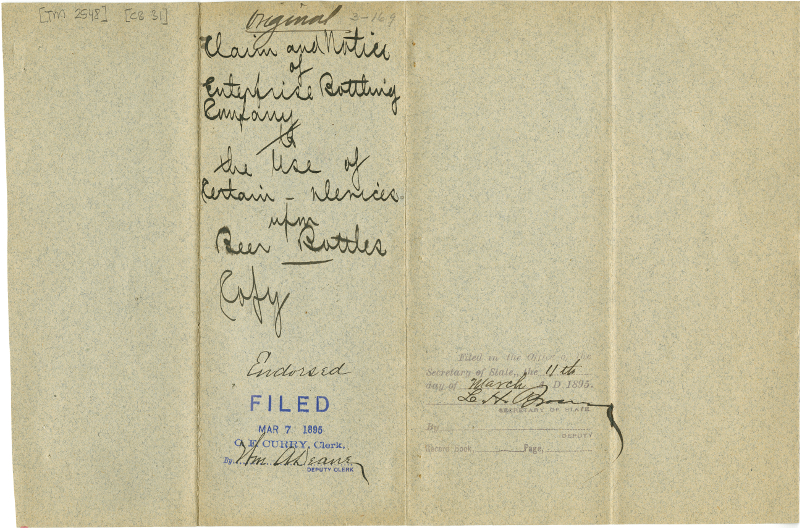 [TM 2548] [CB 31]
Original 3-169
Claim and Notice
of
Enterprise Bottling
Company
to
the Use of
Certain - Devices
upon
Beer Bottles
Copy
Endorsed
FILED
MAR 7 1895
C. F. CURRY, Clerk,
By Wm. A. Deane
DEPUTY CLERK
Filed in the Office of the
Secretary of State, the 11th
day of March A. D. 1895.
L. H. Brown
SECRETARY OF STATE
By
DEPUTY
Record book Page,